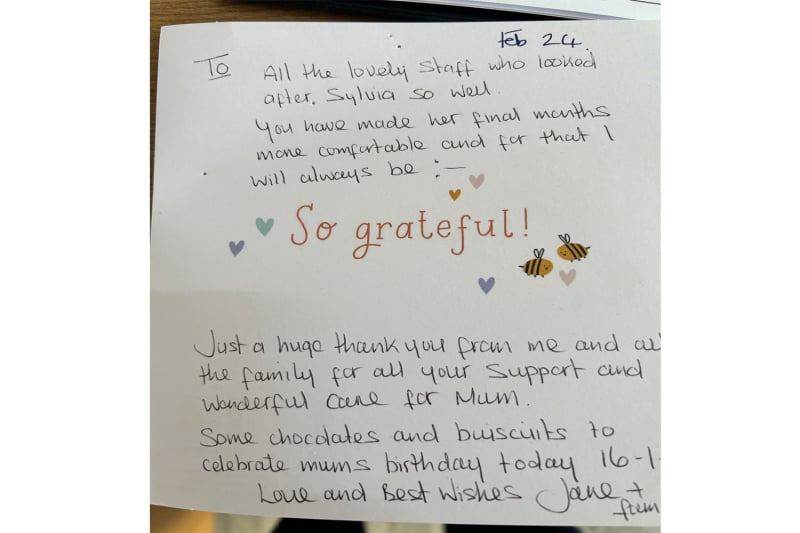 Feb 24.
To All the lovely staff who looked
after. Sylvia so well.
You have made her final months
more comfortable and for that I
will always be :—
So grateful!
Just a huge thank you from me and all
the family for all your support and
wonderful care for Mum.
Some chocolates and buiscuits to
celebrate mums birthday today 16-1-
Love and Best Wishes Jane +